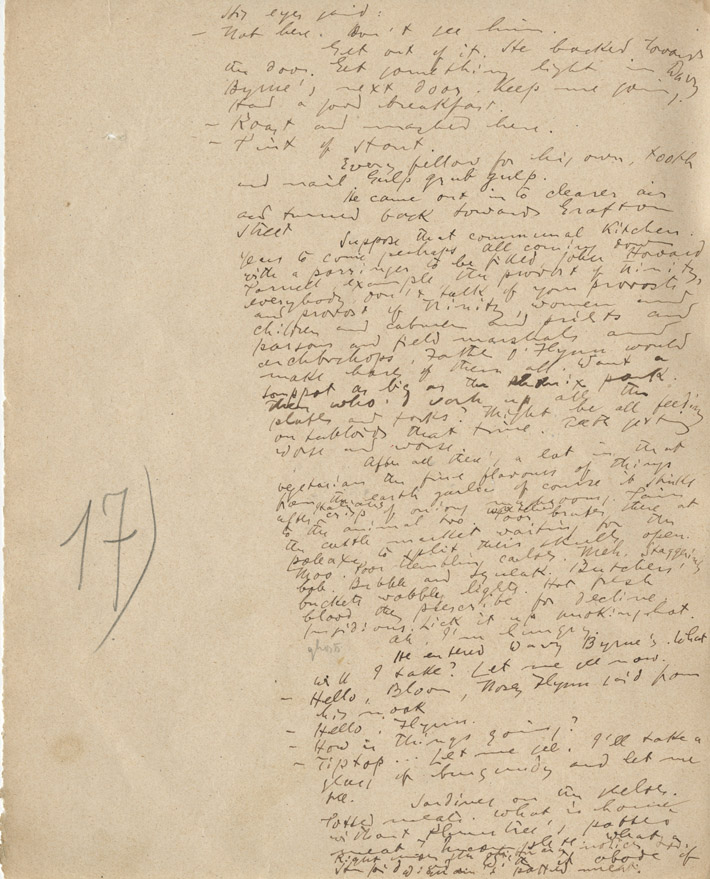 His eyes said:
– Not here. Don't see him.
Get out of it. He backed towards
the door. Get something light in Davy
Byrne's, next door. Keep me going.
Had a good breakfast.
– Roast and mashed here.
– Pint of stout.
Every fellow for his own, tooth
and nail. Gulp grub gulp.
He came out into clearer air
and turned back towards Grafton
street
Suppose that communal kitchen.
Years to come perhaps. All coming down
with a porringer to be filled. John Howard
Parnell example the provost of Trinity,
everybody, don't talk of your provosts
and provost of Trinity, women and
children and cabmen and priests and
parsons and field marshals and
archbishops. Father O'Flynn would
make hares of them all. Want a
souppot as big as the Phoenix park.
Then who'd wash up all the
plates and forks? Might be all feeding
on tabloids that time. Teeth getting
worse and worse.
After all there's a lot in that
vegetarian the fine flavours of things
from the earth garlic of course it stinks
after crisp of onions mushrooms. Pain
to the animal too. Poor brutes there at
the cattle market waiting for the
poleaxe to split their skulls open.
Moo. Poor trembling calves. Meh. Staggering
bob. Bubble and squeak. Butchers'
buckets wobble lights. Hot fresh
blood they prescribe for decline.
Insidious. Lick it up smoking hot.
Ah, I'm hungry.
ghosts
He entered Davy Byrne's. What
will I take? Let me see now.
– Hello, Bloom, Nosey Flynn said from
his nook
– Hello, Flynn.
– How is things going?
– Tiptop ... Let me see. I'll take a
glass of burgundy and let me
see.
Sardines on the shelves.
Potted meats. What is home
without Plumtree's potted
meat? Incomplete. What a
abode of
potted meat.
17)